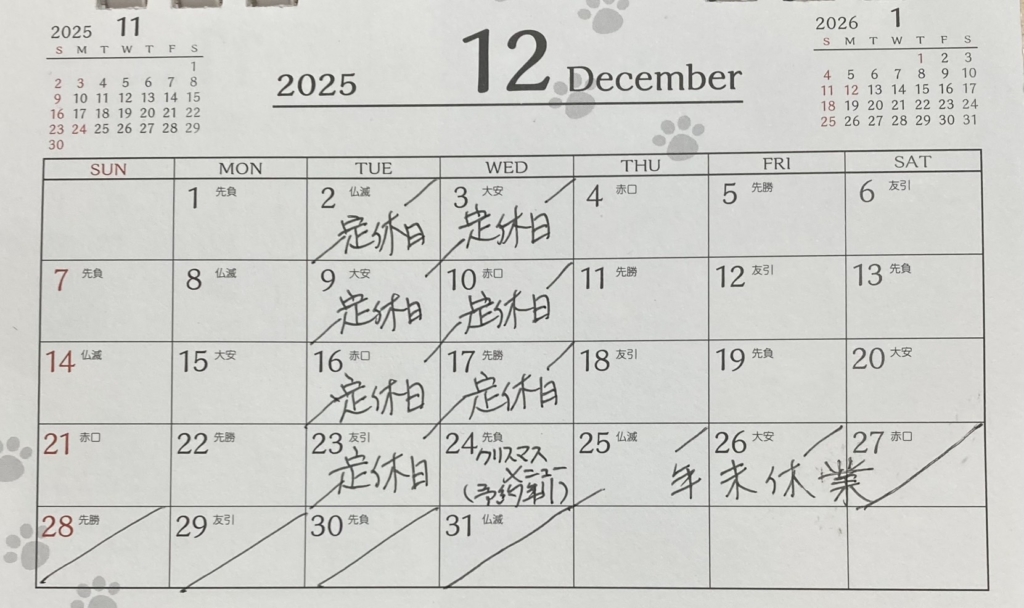 2025 11
S M T W T F S
1
2 3 4 5 6 7 8
9 10 11 12 13 14 15
16 17 18 19 20 21 22
23 24 25 26 27 28 29
30
2025 12 December
2026 1
S M T W T F S
1 2 3
4 5 6 7 8 9 10
11 12 13 14 15 16 17
18 19 20 21 22 23 24
25 26 27 28 29 30 31
SUN MON TUE WED THU FRI SAT
1 先負 2 仏滅 3 大安 4 赤口 5 先勝 6 友引
定休日 定休日
7 先負 8 仏滅 9 大安 10 赤口 11 先勝 12 友引 13 先負
定休日 定休日
14 仏滅 15 大安 16 赤口 17 先勝 18 友引 19 先負 20 大安
定休日 定休日
21 赤口 22 先勝 23 友引 24 先負 25 仏滅 26 大安 27 赤口
定休日 クリスマス
メニュー
(予約制) 年末休業
28 先勝 29 友引 30 先負 31 仏滅